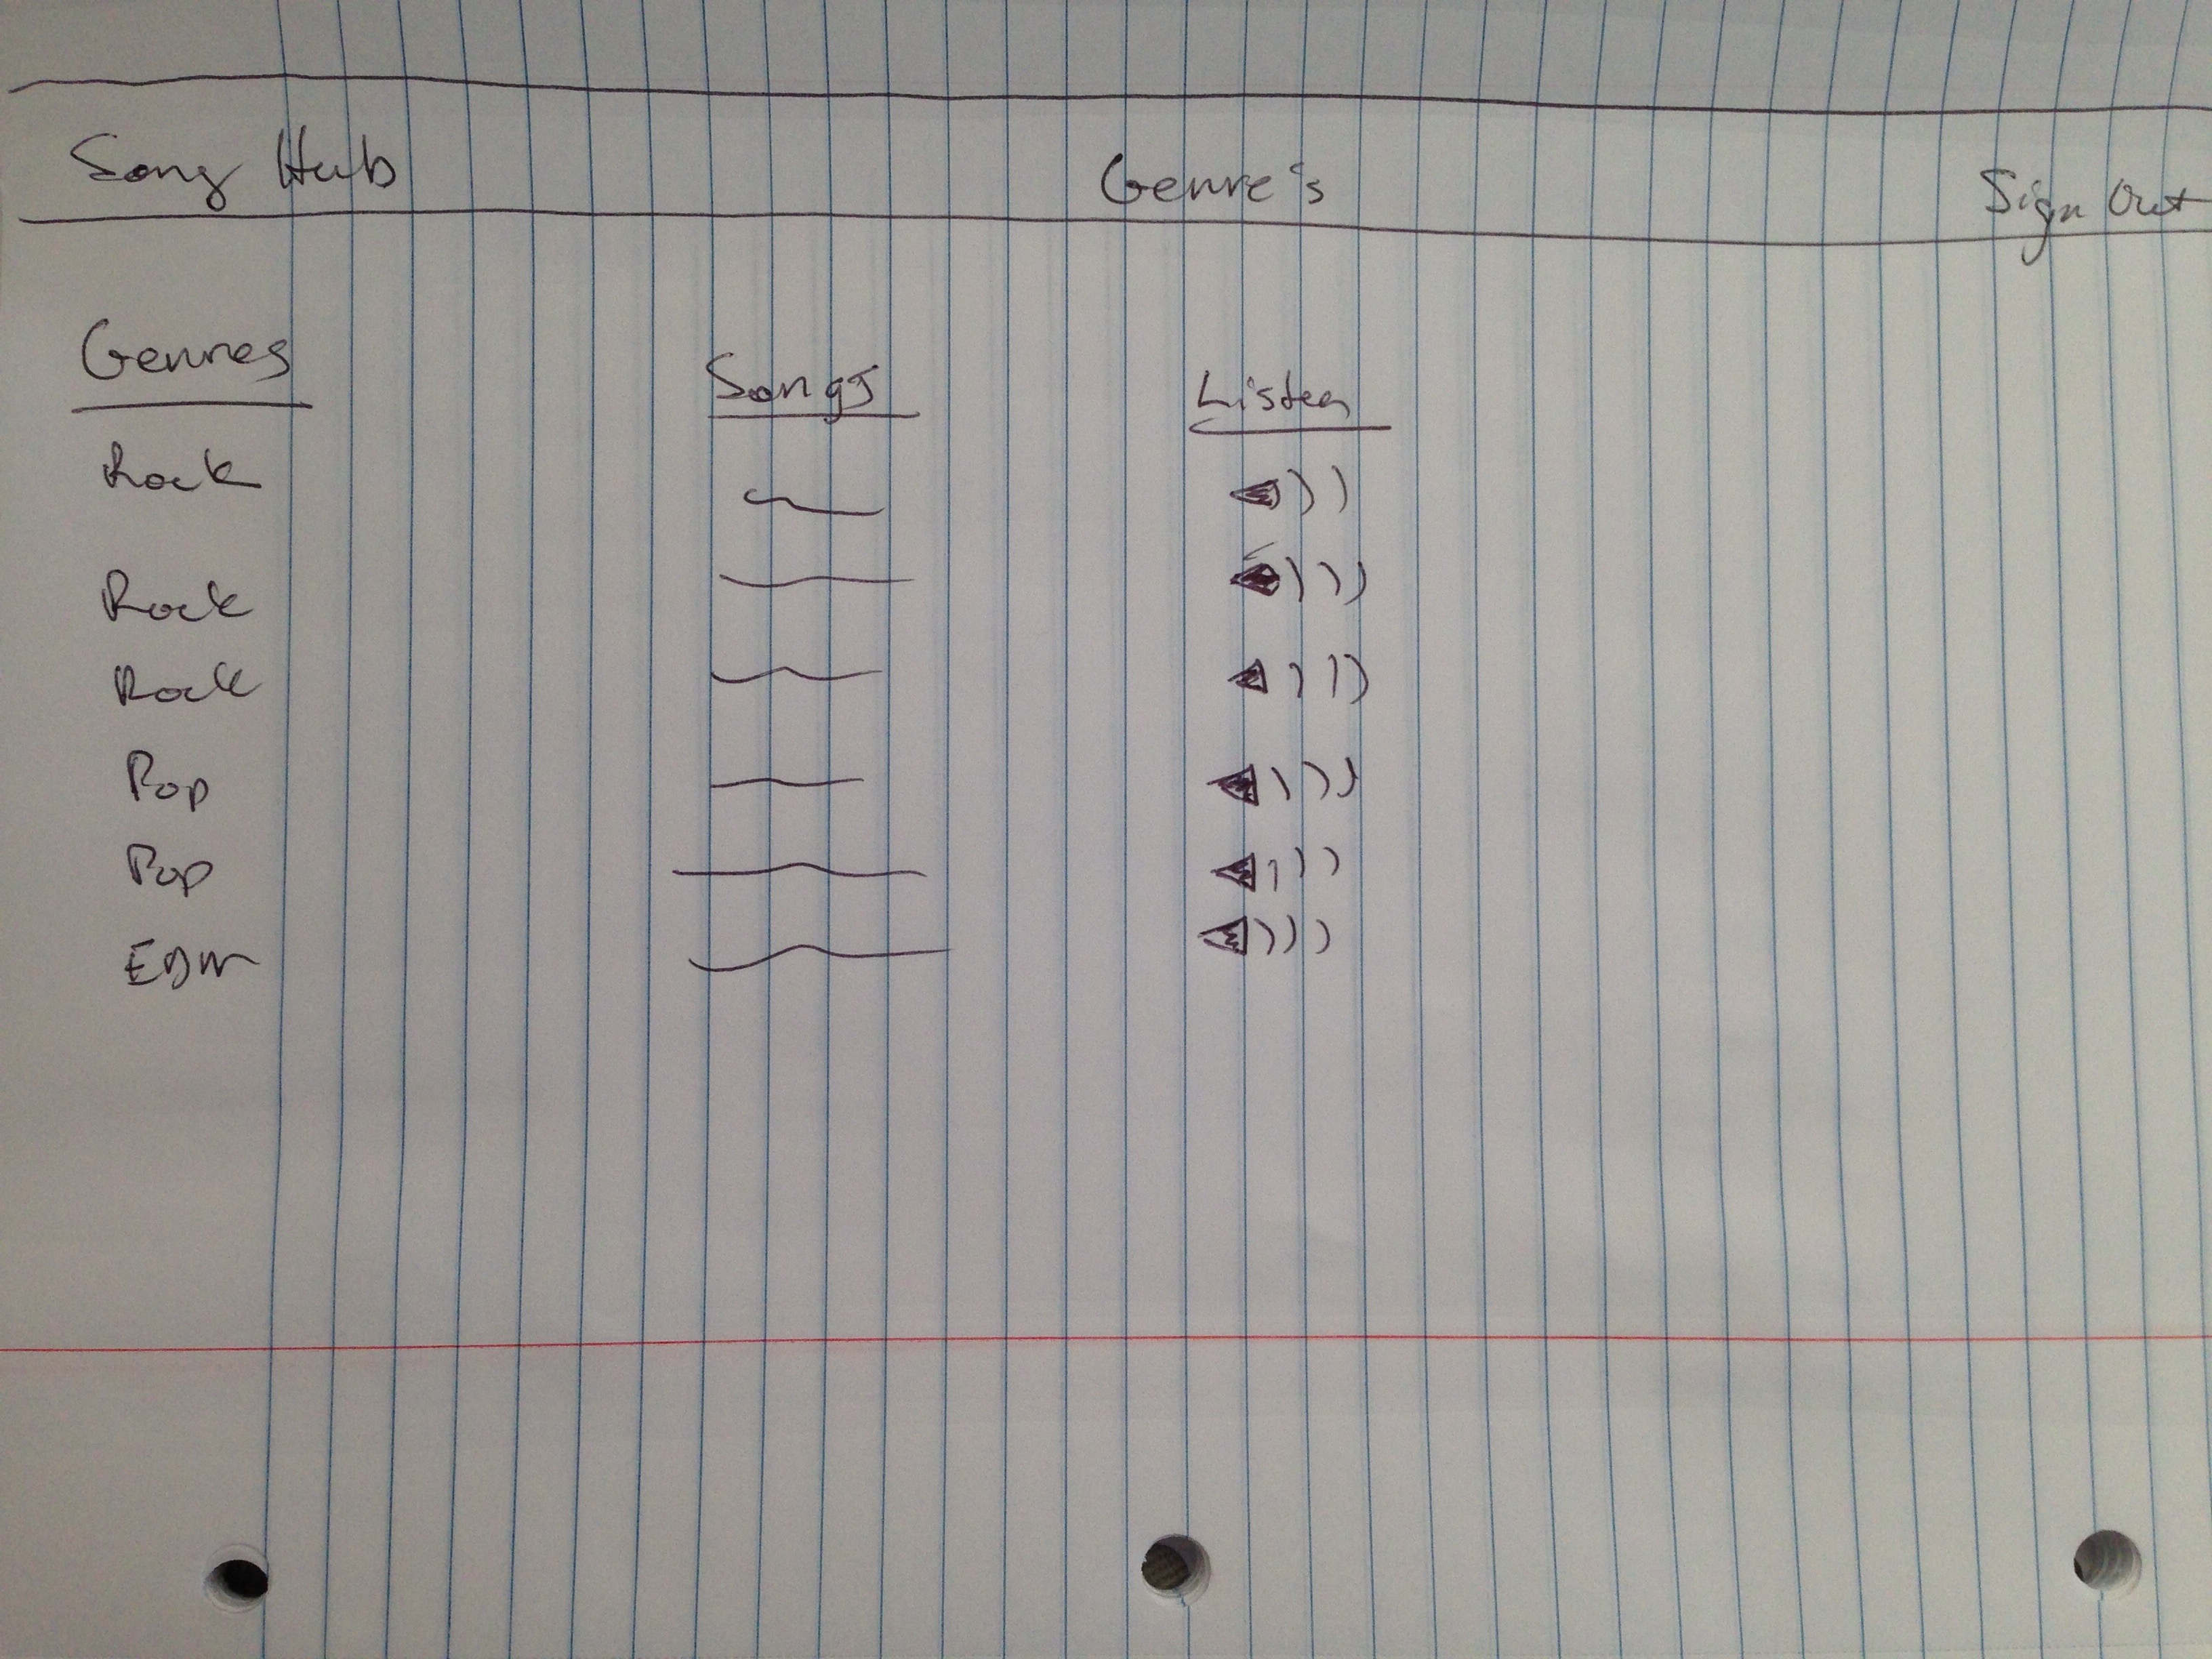 Song Hub Genre's Sign Out
Genres Songs Listen
Rock
Rock
Rock
Pop
Pop
EDM